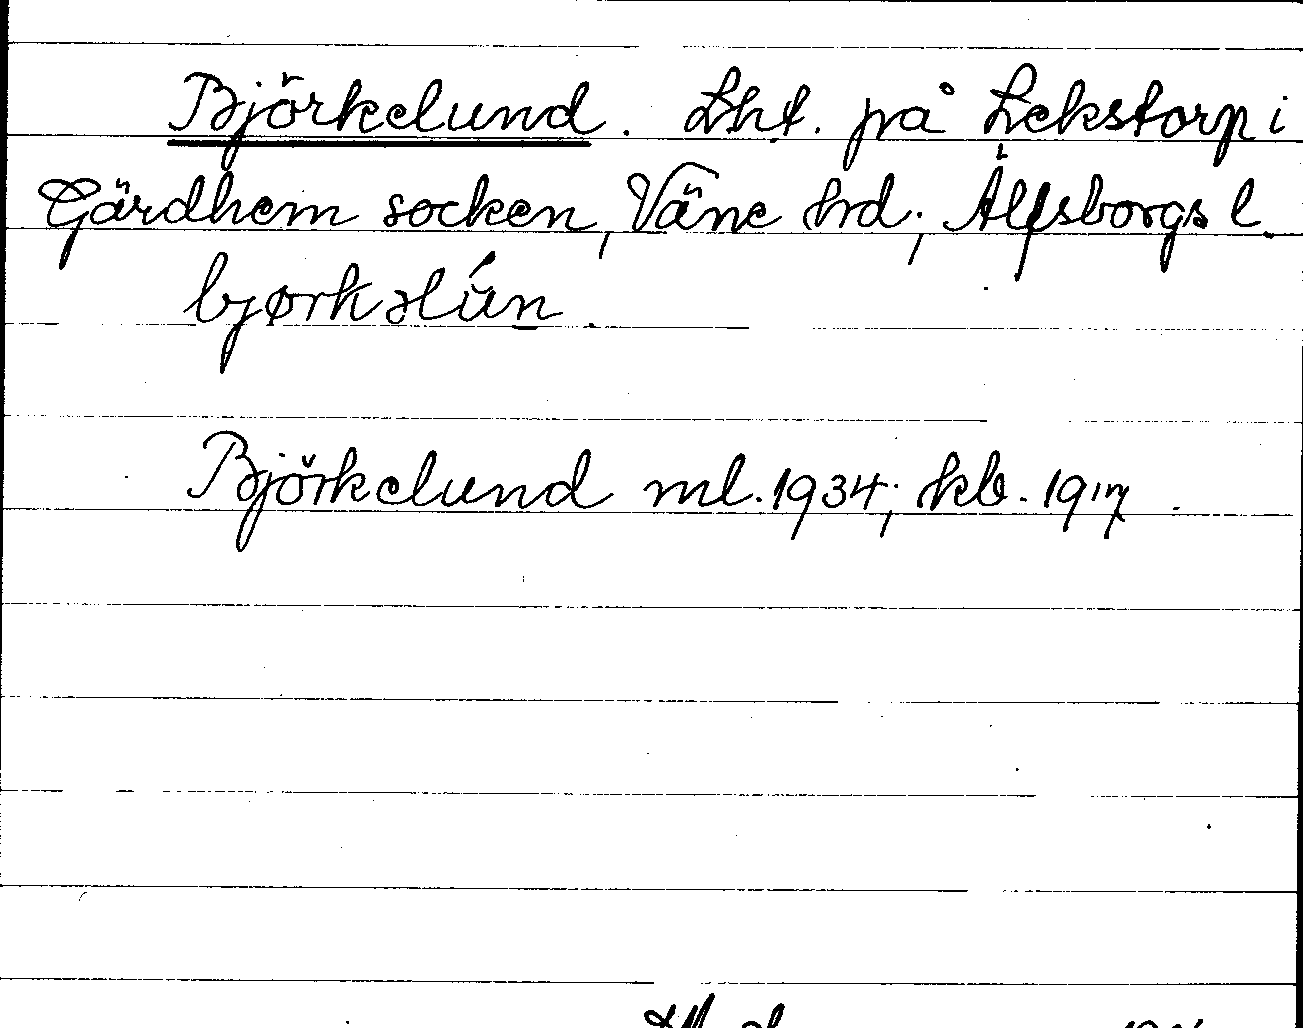 Björkelund. Lht. på Lekstorp i
Gärdhem socken, Väne hrd; Älfsborgs l.
bjørkəlún.
Björkelund ml. 1934; kb. 1917.